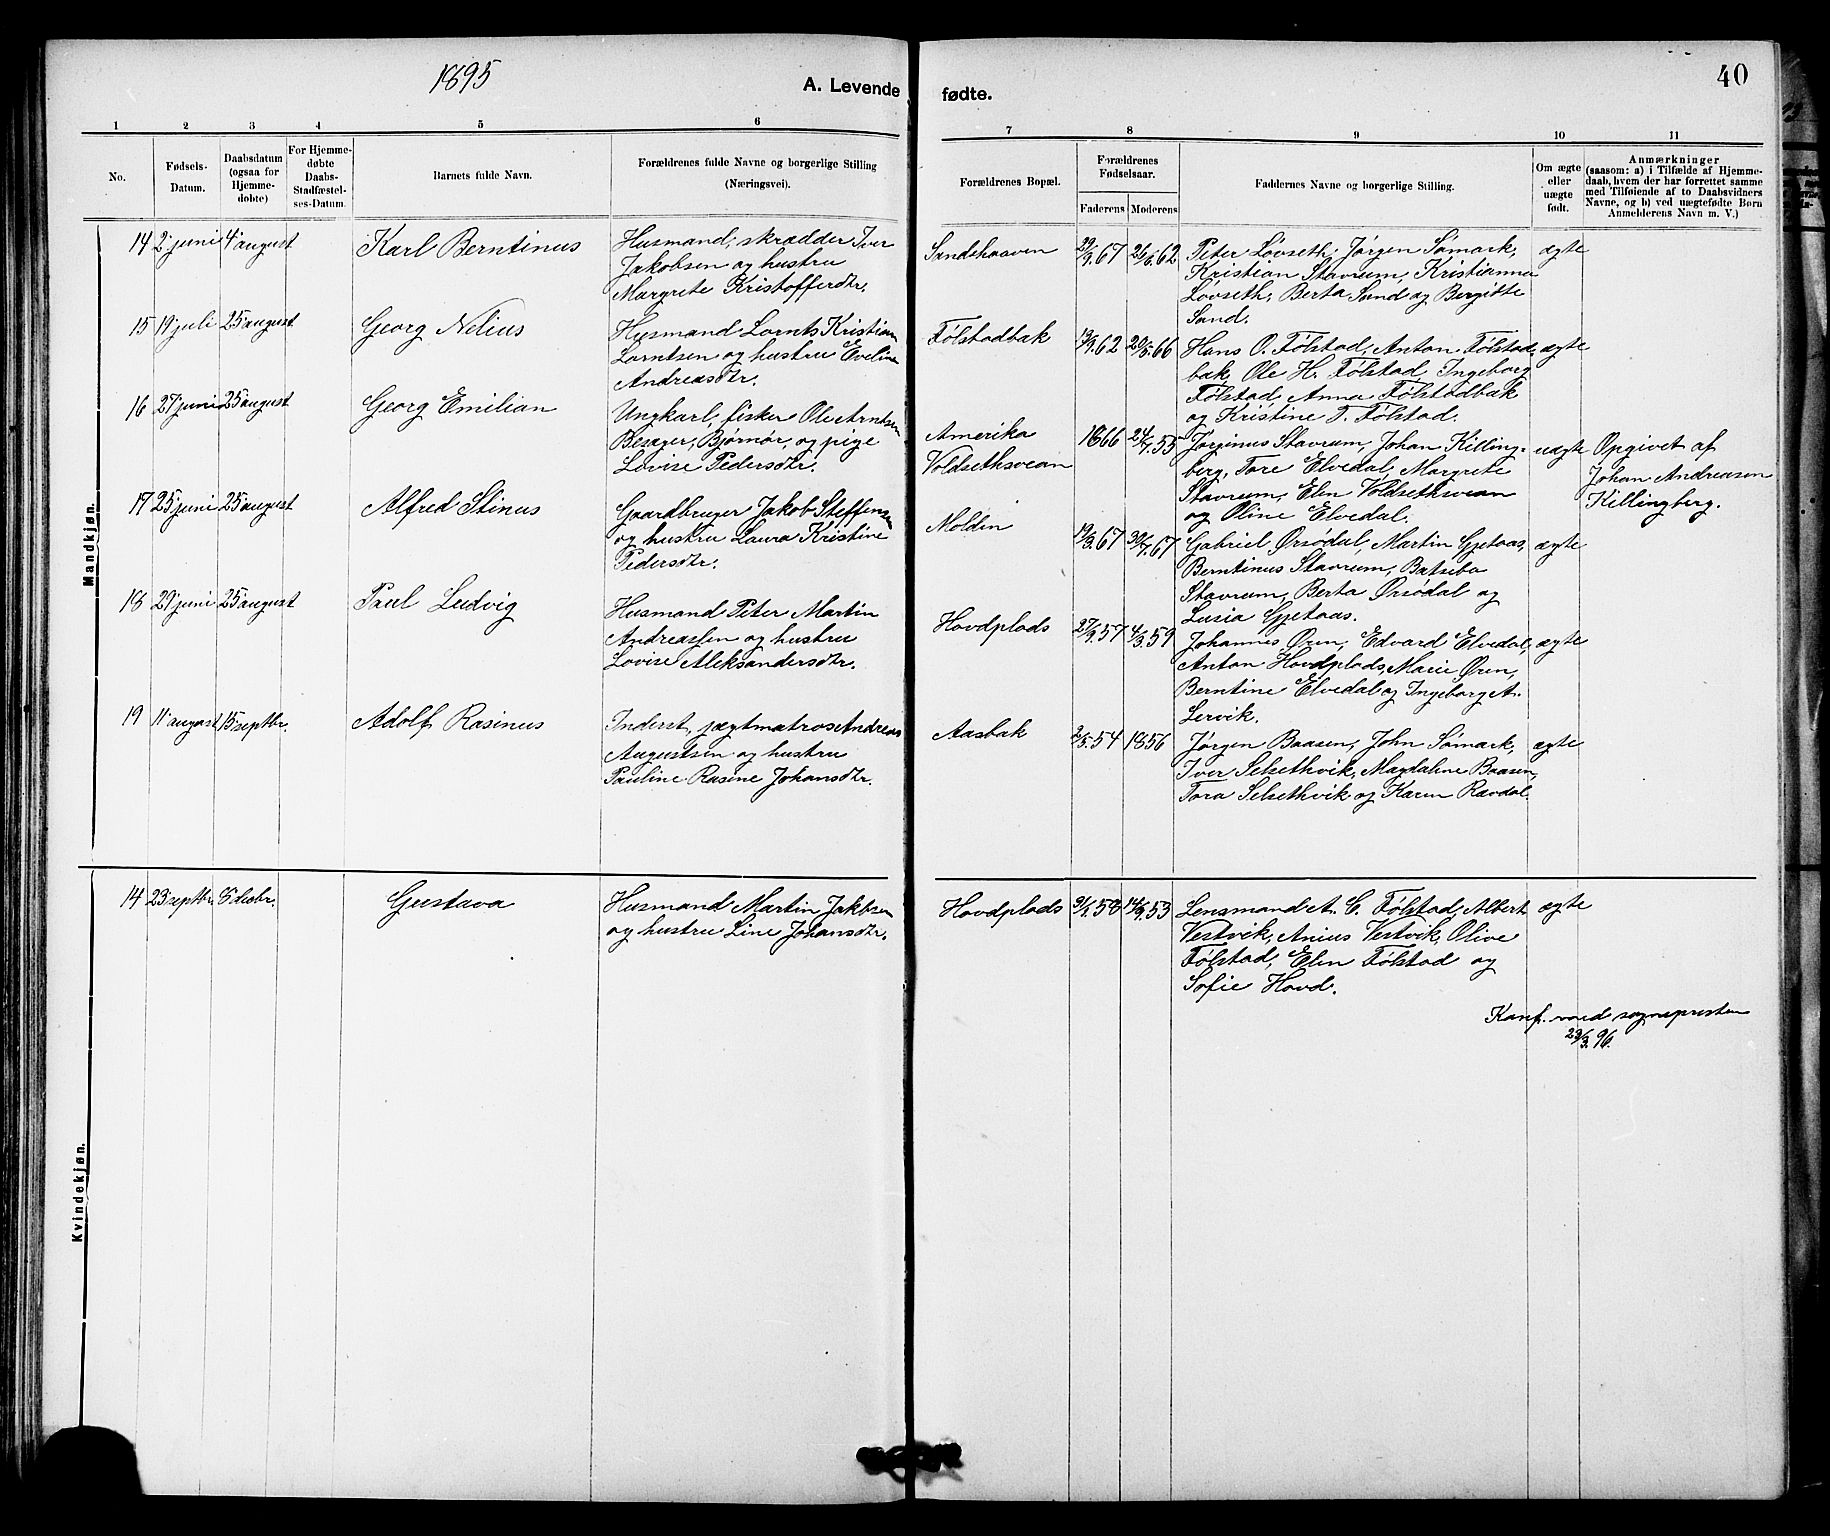 1895
A. Levende
fødte.
40
1 2 3 4 5 6 7 8 9 10 11
No.
Fødsels-
Datum.
Daabsdatum
(ogsaa for
Hjemme-
døbte)
For Hjemme-
døbte
Daabs-
Stadfæstel-
ses-Datum.
Barnets fulde Navn.
Forældrenes fulde Navne og borgerlige Stilling
(Næringsvei).
Forældrenes Bopæl.
Forældrenes
Fødselsaar.
Faderens Moderens
Faddernes Navne og borgerlige Stilling.
Om ægte
eller
uægte
født.
Anmærkninger
(saasom: a) i Tilfælde af Hjemme-
daab, hvem der har forrettet samme
med Tilføiende af to Daabsvidners
Navne, og b) ved uægtefødte Børn
Anmelderens Navn m. V.)
Mandkjøn.
14 2' juni 4' august Karl Berntinus
Husmand, skrædder Iver
Jakobsen og hustru
Margrete Kristofferdtr.
Sandshaaven 29/9.67 26/6.62
Peter Løvseth, Jørgen Sømark,
Kristian Stavrum, Kristianna
Løvseth, Berta Sand og Bergitte
Sand.
ægte
15 19' juli 25' august Georg Nelius
Husmand Lornts Kristian
Lorntsen og hustru Eveline
Andreasdtr.
Følstadbak 13/9.62 20/5.66
Hans O. Følstad, Anton Følstad-
bak, Ole H. Følstad, Ingeborg
Følstad, Anna Følstadbak
og Kristine T. Følstad.
ægte
16 27' juni 25' august Georg Emilian
Ungkarl, fisker Ole Arntsen
Besager, Bjørnør, og pige
Lovise Pedersdtr.
Amerika
Voldsethsveen
1866 24/7.55
Jørginus Stavrum, Johan Killing-
berg, Tore Elvedal, Margrete
Stavrum, Elen Voldsethsveen
og Oline Elvedal.
uægte
Opgivet af
Johan Andreasen
Killingberg.
17 25' juni 25' august Alfred Stinus
Gaardbruger Jakob Steffensen
og hustru Laura Kristine
Pedersdtr.
Moldin 19/3.67 30/7.67
Gabriel Ørsødal, Martin Gjetaas,
Berntinus Stavrum, Batseba
Stavrum, Berta Ørsødal og
Lusia Gjetaas.
ægte
18 29' juni 25' august Paul Ludvig
Husmand Peter Martin
Andreassen og hustru
Lovise Aleksandersdtr.
Hovdplads 27/9.57 4/3.59
Johannes Øren, Edvard Elvedal,
Anton Hovdplads, Marie Øren,
Berntine Elvedal og Ingeborg A.
Lervik.
ægte
19 11' august 15' septbr. Adolf Rasinus
Inderst, jægtmatros Andreas
Augustsen og hustru
Pauline Rasine Johansdtr.
Aasbak 2/5.54 1856
Jørgen Baasen, John Sømark,
Iver Selsethvik, Magdaline Baasen,
Tora Selsethvik og Karen Ravdal.
ægte
Kvindekjøn.
14 23' septbr. 6' Gustava
Husmand Martin Jakobsen
og hustru Line Johansdtr.
Hovdplads 14/9.53
Lensmand A. C. Følstad, Albert
Vestvik, Anius Vestvik, Olive
Følstad, Elen Følstad og
Sofie Hovd.
ægte
Konf. med sognepresten
29/3.96.